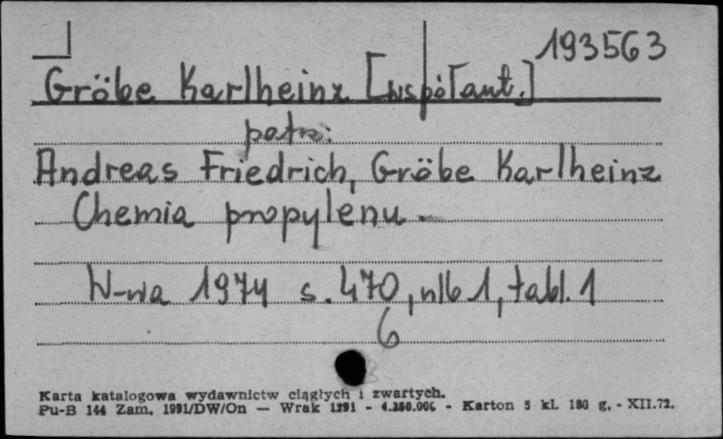 193563
Gröbe Karlheinz [współaut.]
patrz:
Andreas Friedrich, Gröbe Karlheinz
Chemia propylenu.
W-wa 1974 s. 470, nlb 1, tabl. 1
6
Karta katalogowa wydawnictw ciągłych i zwartych.
Pu-B 144 Zam. 1991/DW/On — Wrak 1291 - 4.350.000 - Karton 5 kl. 180 g. - XII.72.